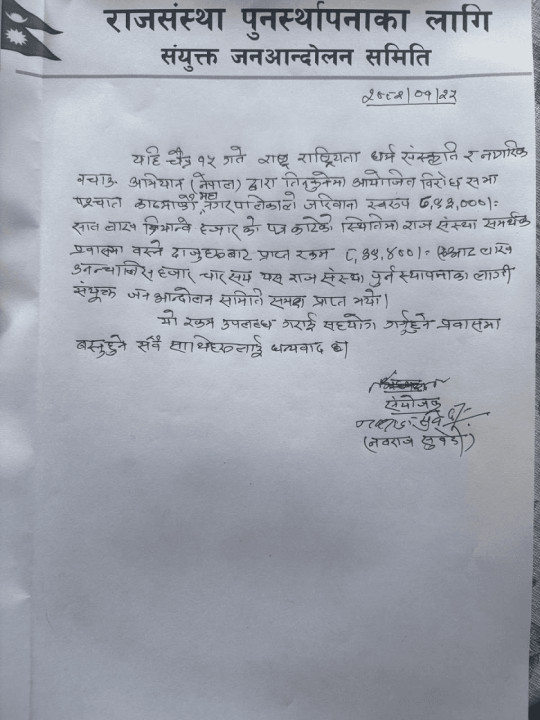 राजसंस्था पुनर्स्थापनाका लागि
संयुक्त जनआन्दोलन समिति
२०८२/०१/२५
यहि चैत्र १५ गते राष्ट्र राष्ट्रियता धर्म संस्कृति र नागरिक
बचाउ अभियान (नेपाल) द्वारा तिनकुनेमा आयोजित विरोध सभा
पश्चात काठमाडौं महानगरपालिकाले जरिवाना स्वरुप ७,९३,०००।=
सात लाख त्रियान्वे हजार को पत्र काटेको स्थितिमा राज संस्था समर्थक
प्रवासमा बस्ने दाजुहरुबाट प्राप्त रकम ८,३९,४००।= आठ लाख
उनन्चालिस हजार चार सय यस राज संस्था पुर्न स्थापनाका लागी
संयुक्त जन आन्दोलन समिति समक्ष प्राप्त भयो।
यो रकम उपलब्ध गराई सहयोग गर्नुहुने प्रवासमा
बस्नुहुने सबै साथीहरुलाई धन्यवाद छ।
संयोजक
नवराज सुवेदी
(नवराज सुवेदी)